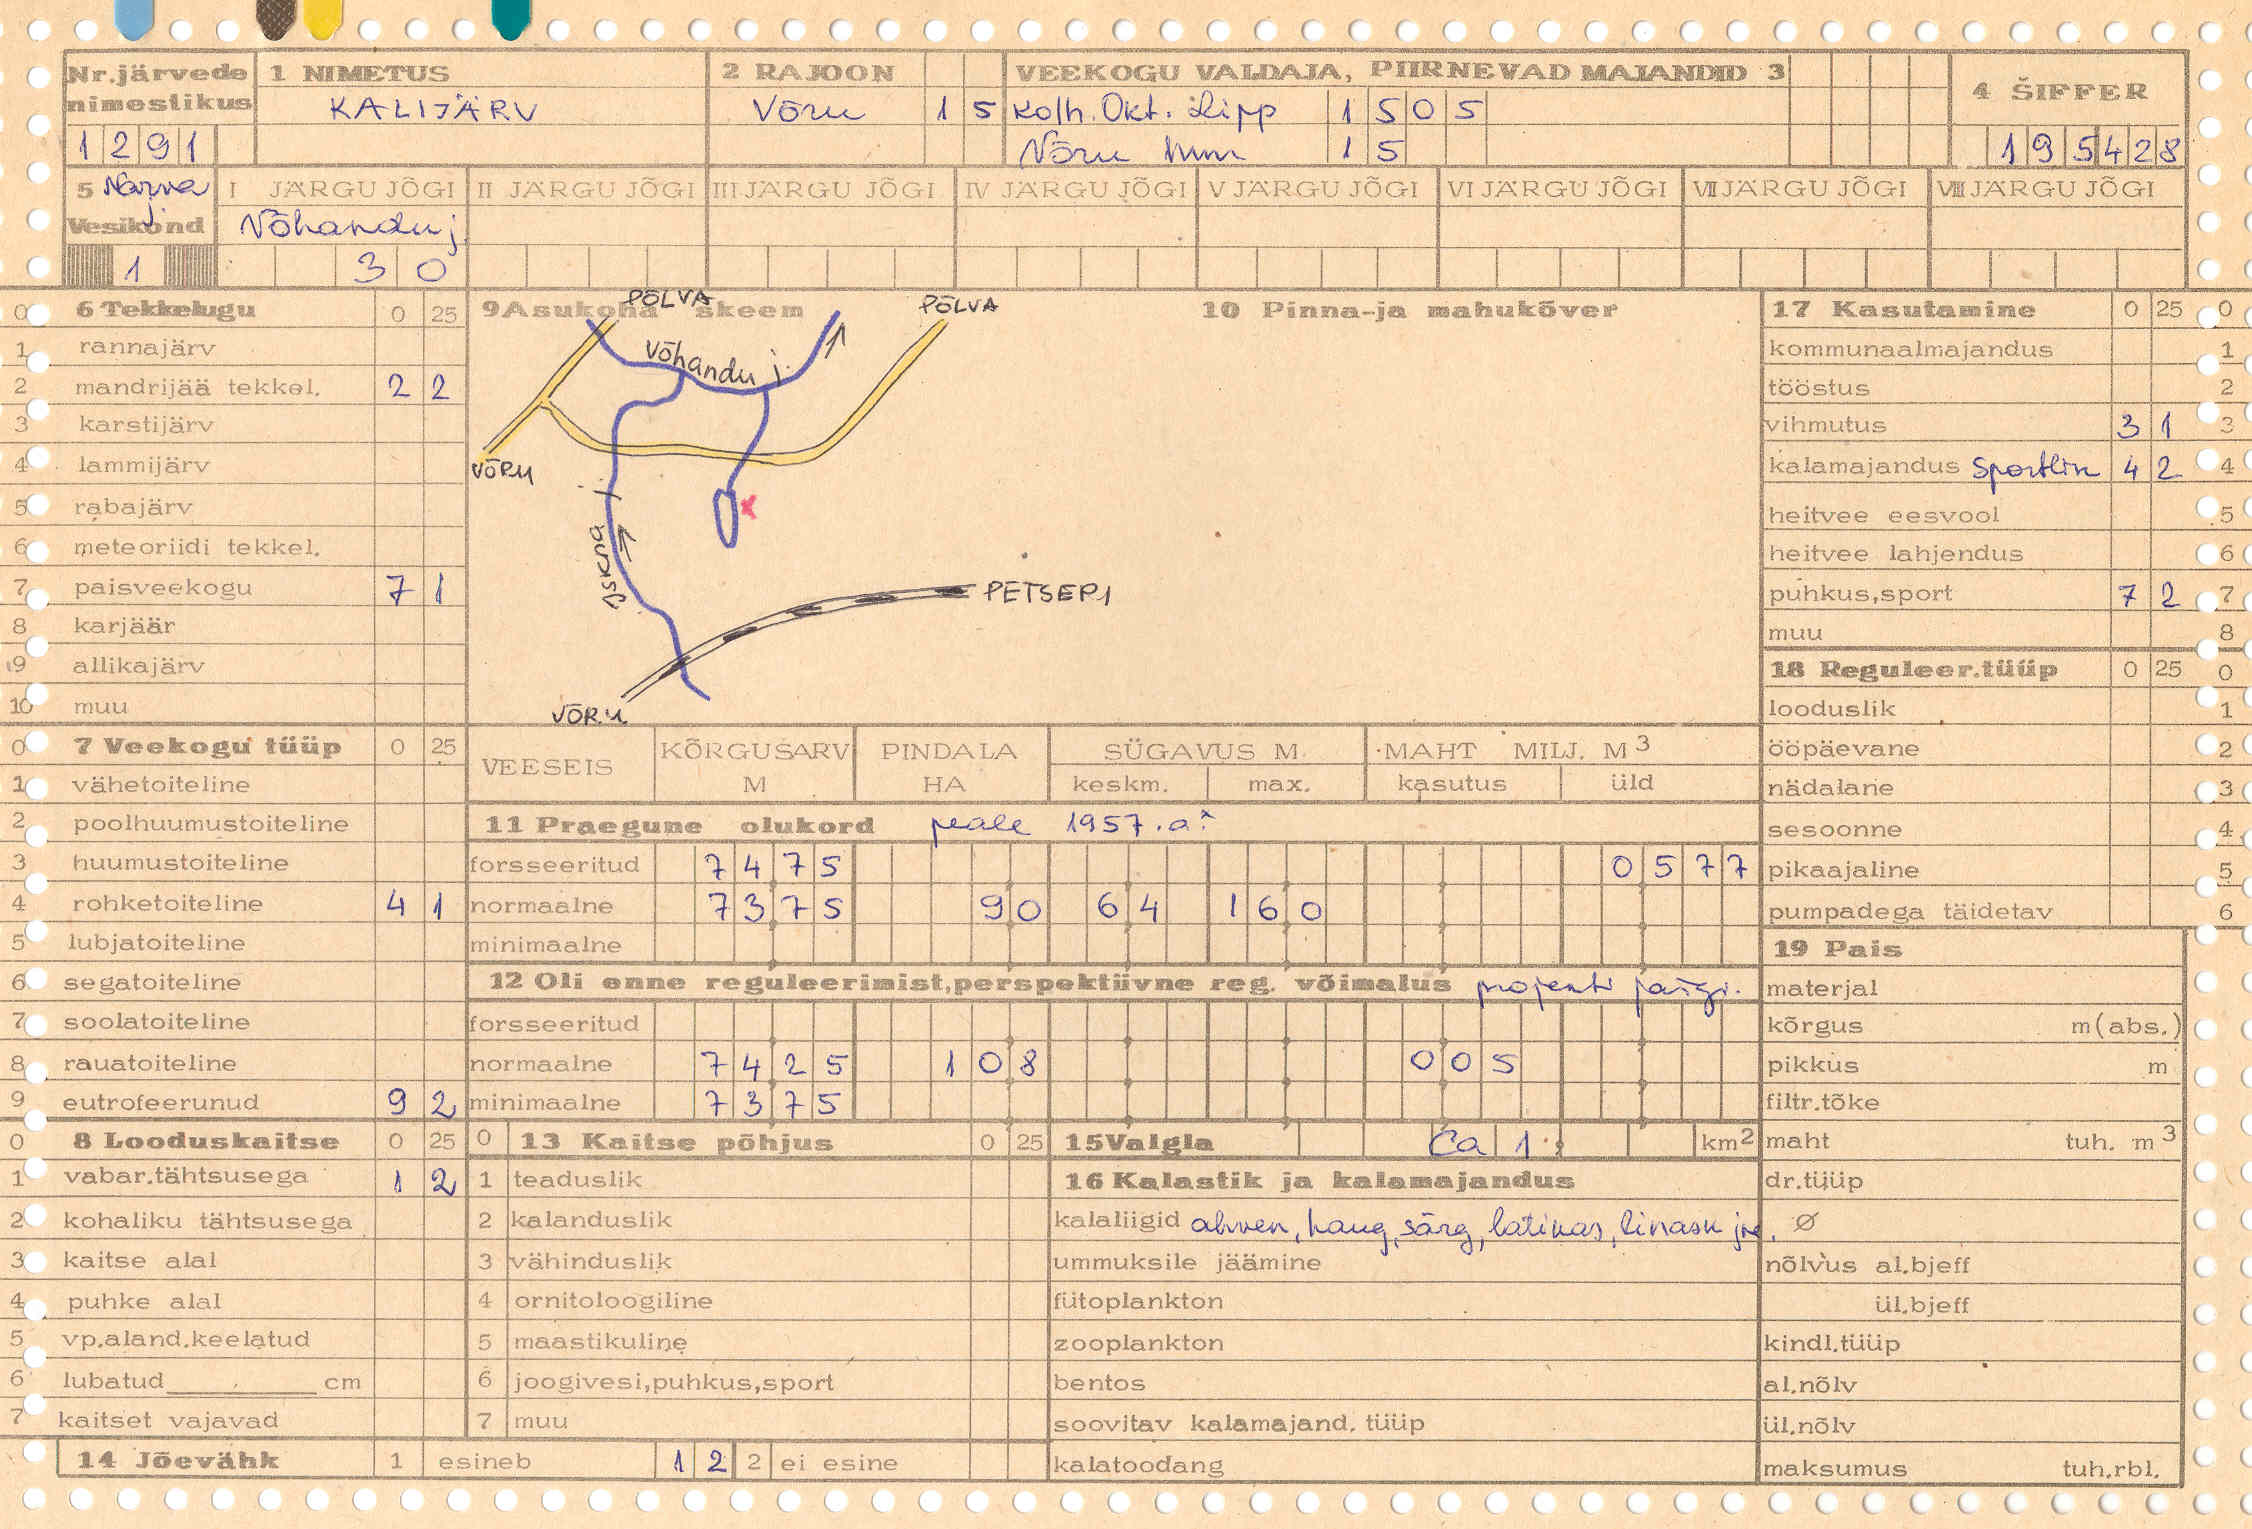 Nr.järvede nimestikus
1291
1 NIMETUS
KALIJÄRV
2 RAJOON
Võru 15
VEEKOGU VALDAJA, PIIRNEVAD MAJANDID 3
Kolh. Okt. Lipp 1505
Võru mm 15
4 ŠIFFER
195428
5 Narva j.
Vesikond
1
I JÄRGU JÕGI
Võhandu j.
30
II JÄRGU JÕGI
III JÄRGU JÕGI
IV JÄRGU JÕGI
V JÄRGU JÕGI
VI JÄRGU JÕGI
VII JÄRGU JÕGI
VIII JÄRGU JÕGI
0 6 Tekkelugu 0 25
1 rannajärv
2 mandrijää tekkel. 2 2
3 karstijärv
4 lammijärv
5 rabajärv
6 meteoriidi tekkel.
7 paisveekogu 7 1
8 karjäär
9 allikajärv
10 muu
0 7 Veekogu tüüp 0 25
1 vähetoiteline
2 poolhuumustoiteline
3 huumustoiteline
4 rohketoiteline 4 1
5 lubjatoiteline
6 segatoiteline
7 soolatoiteline
8 rauatoiteline
9 eutrofeerunud 9 2
0 8 Looduskaitse 0 25
1 vabar.tähtsusega 1 2
2 kohaliku tähtsusega
3 kaitse alal
4 puhke alal
5 vp.aland.keelatud
6 lubatud cm
7 kaitset vajavad
14 Jõevähk 1 esineb 1 2 2 ei esine
9 Asukoha skeem
PÕLVA
PÕLVA
Võhandu j.
VÕRU
Iskna j.
PETSERI
VÕRU
10 Pinna-ja mahukõver
VEESEIS
KÕRGUSARV M
PINDALA HA
SÜGAVUS M
keskm. max.
MAHT MILJ. M3
kasutus üld
11 Praegune olukord peale 1957.a.
forsseeritud 7475 0577
normaalne 7375 90 64 160
minimaalne
12 Oli enne reguleerimist,perspektiivne reg. võimalus projekti järgi.
forsseeritud
normaalne 7425 108 005
minimaalne 7375
0 13 Kaitse põhjus 0 25
1 teaduslik
2 kalanduslik
3 vähinduslik
4 ornitoloogiline
5 maastikuline
6 joogivesi,puhkus,sport
7 muu
15 Valgla Ca 1 km2
16 Kalastik ja kalamajandus
kalaliigid ahven, haug, särg, latikas, linask jne.
ummuksile jäämine
fütoplankton
zooplankton
bentos
soovitav kalamajand. tüüp
kalatoodang
17 Kasutamine 0 25 0
kommunaalmajandus 1
tööstus 2
vihmutus 3 1 3
kalamajandus sportlik 4 2 4
heitvee eesvool 5
heitvee lahjendus 6
puhkus,sport 7 2 7
muu 8
18 Reguleer.tüüp 0 25 0
looduslik 1
ööpäevane 2
nädalane 3
sesoonne 4
pikaajaline 5
pumpadega täidetav 6
19 Pais
materjal
kõrgus m(abs.)
pikkus m
filtr.tõke
maht tuh. m3
dr.tüüp
Ø
nõlvus al.bjeff
ül.bjeff
kindl.tüüp
al.nõlv
ül.nõlv
maksumus tuh.rbl.